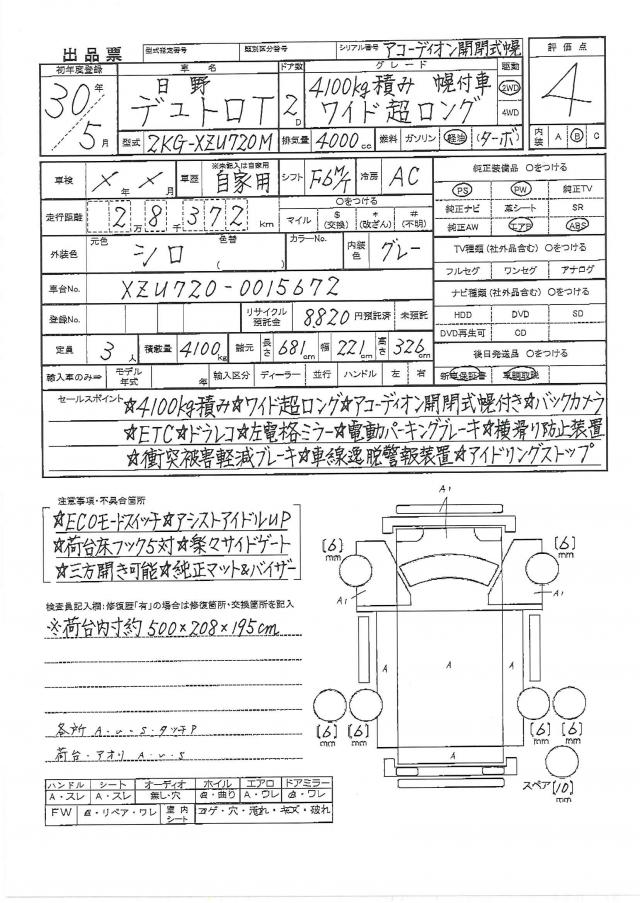 出品票 型式指定番号 類別区分番号 シリアル番号 アコーディオン開閉式幌
初年度登録 車名 ドア数 グレード 駆動 評価点
30年 日野 4100kg積み 幌付車 2WD 4
5月 デュトロT 2D ワイド超ロング 4WD
型式 2KG-XZU720M 排気量 4000cc 燃料 ガソリン 軽油 (ターボ) 内装 A B C
車検 ×年×月 車歴 ※未記入は自家用 自家用 シフト F6M/T 冷房 AC
純正装備品 ○をつける
PS PW 純正TV
走行距離 2万8千372km ○をつける マイル $(交換) *(改ざん) #(不明)
純正ナビ 革シート SR
純正AW エアB ABS
外装色 元色 シロ 色替 ( ) カラーNo. 内装色 グレー
TV種類(社外品含む) ○をつける
フルセグ ワンセグ アナログ
車台No. XZU720-0015672
ナビ種類(社外品含む) ○をつける
登録No. リサイクル預託金 8,820円預託済 未預託
HDD DVD SD
DVD再生可 CD
定員 3人 積載量 4100kg 諸元 長さ 681cm 幅 221cm 高さ 326cm
後日発送品 ○をつける
輸入車のみ⇒ モデル年式 年 輸入区分 ディーラー 並行 ハンドル 左 右
新車保証書 車輌取説
セールスポイント
☆4100kg積み☆ワイド超ロング☆アコーディオン開閉式幌付き☆バックカメラ
☆ETC☆ドラレコ☆左電格ミラー☆電動パーキングブレーキ☆横滑り防止装置
☆衝突被害軽減ブレーキ☆車線逸脱警報装置☆アイドリングストップ
注意事項・不具合箇所
☆ECOモードスイッチ☆アシストアイドルUP
☆荷台床フック5対☆楽々サイドゲート
☆三方開き可能☆純正マット&バイザー
検査員記入欄:修復歴「有」の場合は修復箇所・交換箇所を記入
※荷台内寸約500×208×195cm
各所 A・U・S・タッチP
荷台・アオリ A・U・S
A1
[6]mm [6]mm
A1 A1
A A A
[6]mm [6]mm [6]mm [6]mm
A
スペア[10]mm
ハンドル シート オーディオ ホイル エアロ ドアミラー
A・スレ A・スレ 無し・穴 曲り A・ワレ ワレ
FW リペア・ワレ 室内シート コゲ・穴・汚れ・キズ・破れ